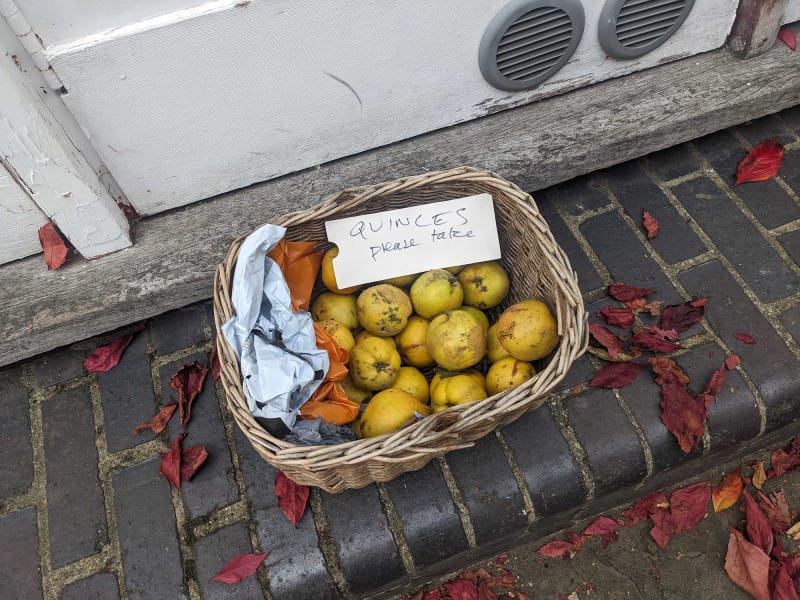 QUINCES
please take